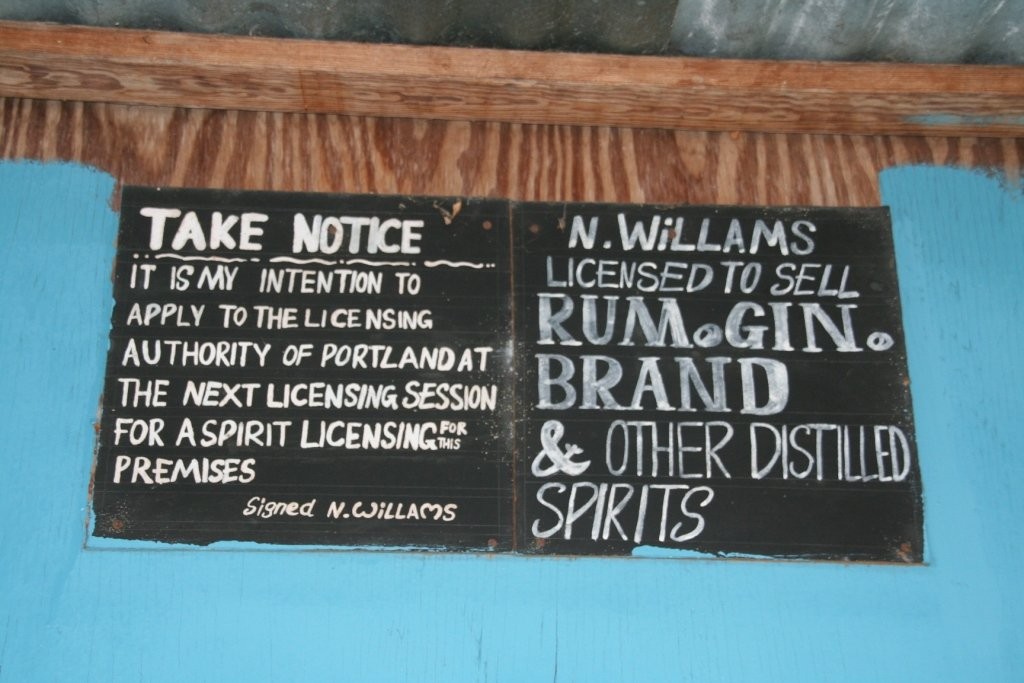 TAKE NOTICE
IT IS MY INTENTION TO
APPLY TO THE LICENSING
AUTHORITY OF PORTLAND AT
THE NEXT LICENSING SESSION
FOR A SPIRIT LICENSING FOR THIS
PREMISES
Signed N.WiLLAMS
N.WiLLAMS
LICENSED TO SELL
RUM.GIN.
BRAND
& OTHER DISTILLED
SPIRITS